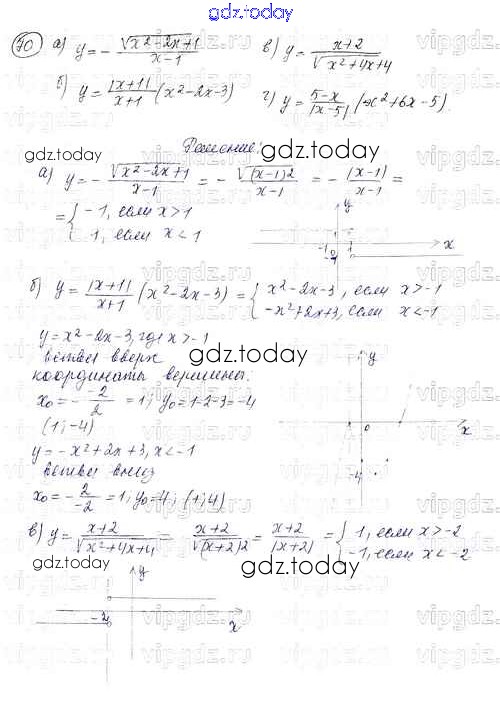 gdz.today
70 а) y = - √(x²-2x+1)/(x-1) в) y = (x+2)/√(x²+4x+4)
б) y = |x+1|/(x+1) (x²-2x-3) г) y = (5-x)/|x-5| (-x²+6x-5).
Решение:
gdz.today gdz.today
а) y = - √(x²-2x+1)/(x-1) = - √(x-1)2/(x-1) = - |x-1|/(x-1) =
= { -1, если x>1
1, если x<1
y
1
-1 0 1 x
б) y = |x+1|/(x+1) (x²-2x-3) = { x²-2x-3, если x>-1
-x²+2x+3, если x<-1
y = x²-2x-3, где x>-1
ветви вверх
gdz.today
координаты вершины:
x₀ = - 2/2 = 1; y₀=1-2-3=-4
(1;-4)
y
0 x
-4
y = -x²+2x+3, x<-1
ветви вниз
x₀ = - 2/-2 = 1; y₀=4; (1;4)
в) y = (x+2)/√(x²+4x+4) = (x+2)/√(x+2)2 = (x+2)/|x+2| = { 1, если x>-2
-1, если x<-2
gdz.today gdz.today
y
-2 x
vipgdz.ru